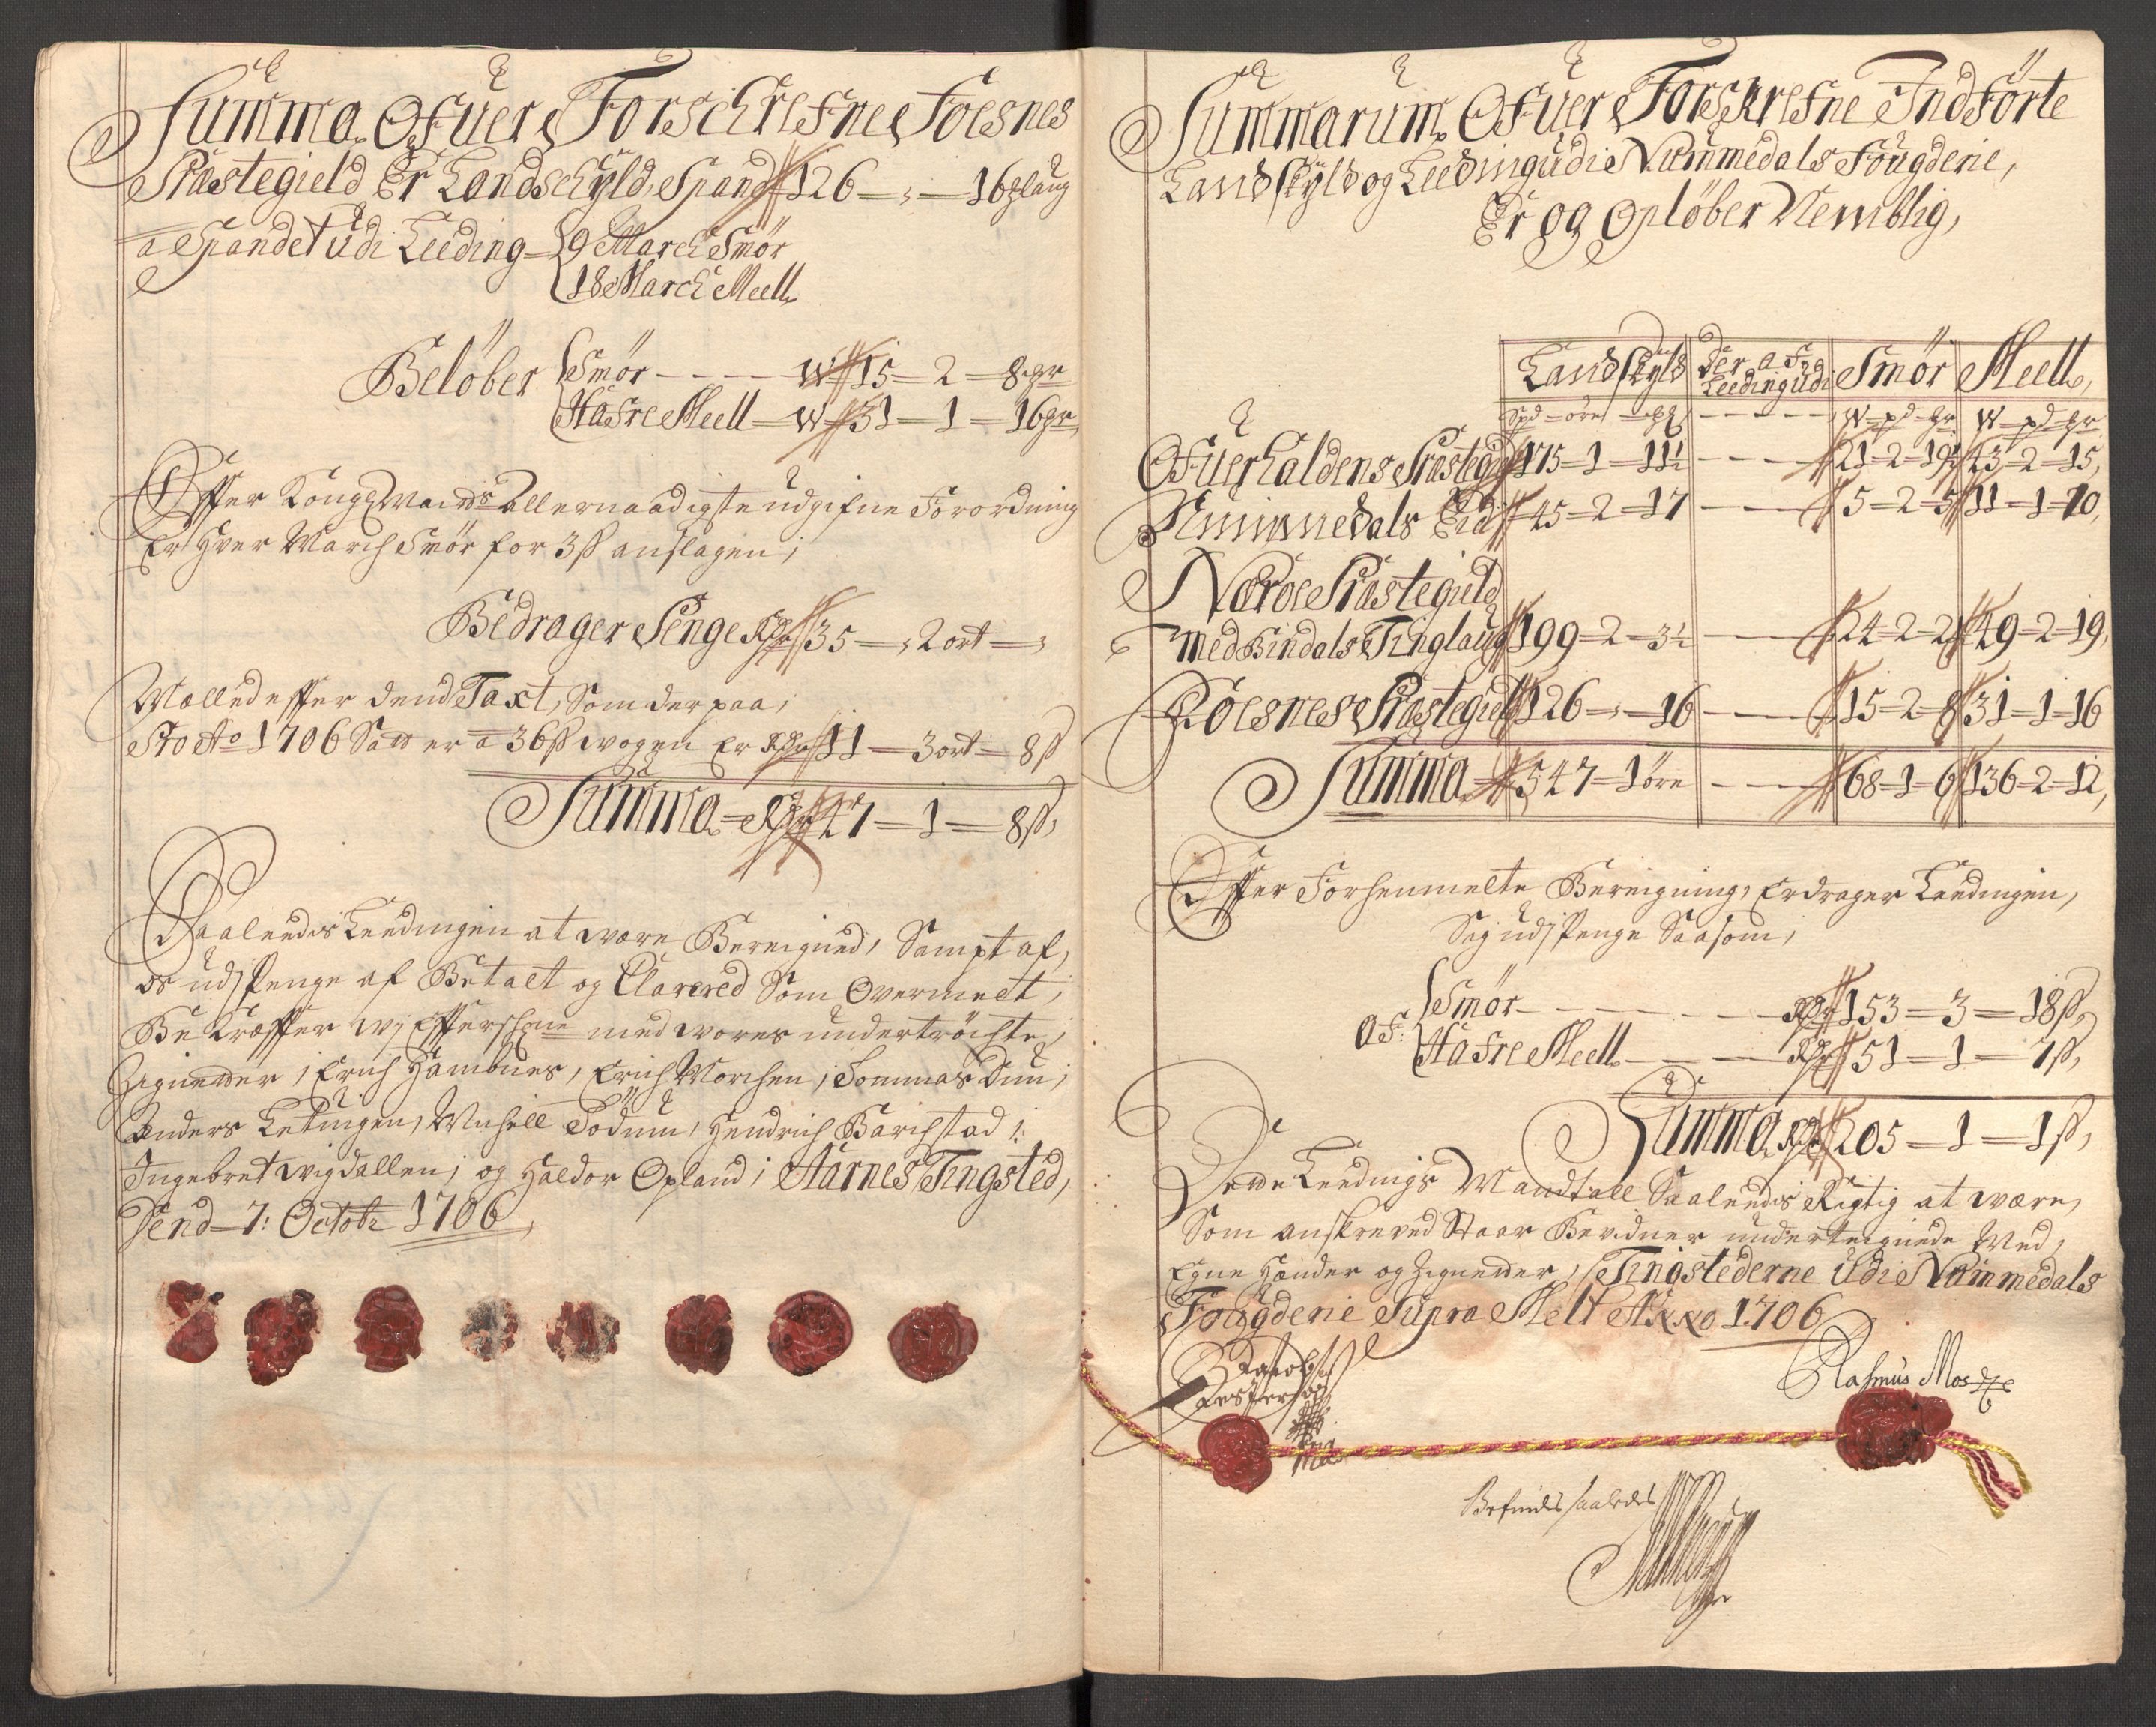 Summa Ofuer Forschrefne Foesnes
Præstegield Er Landschyld, Spand 126 – , – 16 #laug
a Spandet Udi Leeding 9 March Smör
18 March Meell
Belöber Smör - - - - W 15 – 2 – 8 #r
Hafre Meell – W 31 – 1 – 16 #r,
Effter Kongl Maiıts allernaadigste udgifne Forordning
Er hver March Smör for 3 ß anslagen,
Bedrager Penge Rdr 35 – , 2 ort – ,
Meelled effter dend Taxt, Som der paa,
Sto Ao 1706 Satt er a 36 ß wogen Er Rdr 11 – 3 ort – 8 ß
Summa – Rdr 47 – 1 – 8 ß,
Saaleedis Leedingen at were Bereigned, Sampt af,
os udj Penge af Betalt og Clarered Som Overmelt,
Be Kræffter wj Effterschrne med wores undertröchte
Zignetter, Erich Hambnes, Erich Morchen, Tommas Duun,
Anders Ketingen, Michell Födum, Hendrich Barchstad,
Ingebret wigdallen, og Haldor Opland, Aarnes Tingsted,
Dend 7: Octobr 1706,
Summarum Ofuer Forskrefne Indförte
Landskyld og Leeding udi Nummedals Fougderie,
Er og Oplöber Nemblig,
Landskyld Der a Fra Leeding Udi Smör Meell,
Spd – öre – #l – – – – W – pd – #r W – pd – #r
Ofuerhaldens Præstegield 175 – 1 – 11½ – – – 21 – 2 – 19½ 43 – 2 – 15,
Nummedals Eid 45 – 2 – 17 – – – 5 – 2 – 5 11 – 1 – 10,
Næröe Præstegield
med Bindals Tinglaug 199 – 2 – 3½ – – – 24 – 2 – 2 49 – 2 – 19,
Foesnes Præstegield 126 – , – 16 – – – 15 – 2 – 8 31 – 1 – 16
Summa 547 – 1 öre – – – 68 – 1 – 6 136 – 2 – 12,
Effter Forhenmelte Bereigning, Erdrager Leedingen,
Sig udj Penge Saasom,
Af: Smör – – – – Rdr 153 – 3 – 18 ß,
Hafre Meell – – – Rdr 51 – 1 – 7 ß,
Summa Rdr 205 – 1 – 1 ß,
Dette Leedings Mandtall Saaleedis Rigtig at were,
Som anskreved Staar Bevidner underteignede Med,
Egne Hænder og Zignetter, Tingstederne Udi Nummedals
Fougderie Supra Melt Anno 1706
Rasmus Mos
Befindes saaledes